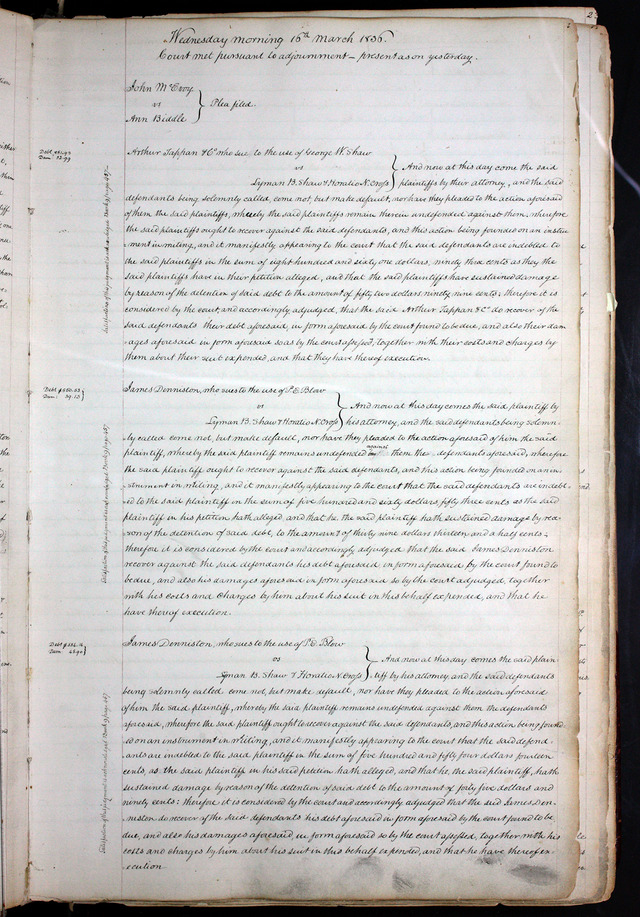 Wednesday morning 16th March 1836.
Court met pursuant to adjournment – present as on yesterday.
John McEvoy
vs
Ann Biddle
Plea filed.
Arthur Tappan & Co who sue to the use of George W. Shaw
vs
Lyman B. Shaw & Horatio N. Cross
And now at this day come the said
plaintiffs by their attorney, and the said
defendants being solemnly called, come not, but make default, nor have they pleaded to the action aforesaid
of them the said plaintiffs, whereby the said plaintiffs remain therein undefended against them, wherefore
the said plaintiffs ought to recover against the said defendants, and this action being founded on an instru
ment in writing, and it manifestly appearing to the court that the said defendants are indebted to
the said plaintiffs in the sum of eight hundred and sixty one dollars, ninety three cents as they the
said plaintiffs have in their petition alleged, and that the said plaintiffs have sustained damage
by reason of the detention of said debt to the amount of fifty two dollars ninety nine cents; therefore it is
considered by the court, and accordingly adjudged, that the said Arthur Tappan & Co do recover of the
said defendants their debt aforesaid, in form aforesaid by the court found to be due, and also their dam
ages aforesaid in form aforesaid so as by the court assessed, together with their costs and charges by
them about their suit expended, and that they have thereof execution.
Dam. 52.99
James Denniston, who sues to the use of P. E. Blow
vs
Lyman B. Shaw & Horatio N. Cross
And now at this day comes the said plaintiff by
his attorney, and the said defendants being solemn-
ly called come not, but make default, nor have they pleaded to the action aforesaid of him the said
plaintiff, whereby the said plaintiff remains undefended against them the defendants aforesaid, wherefore
the said plaintiff ought to recover against the said defendants, and this action being founded on an in
strument in writing, and it manifestly appearing to the court that the said defendants are indebt
ed to the said plaintiff in the sum of five hundred and sixty dollars, fifty three cents as the said
plaintiff in his petition hath alleged, and that he the said plaintiff hath sustained damage by rea
son of the detention of said debt, to the amount of thirty nine dollars thirteen and a half cents;
therefore it is considered by the court and accordingly adjudged that the said James Denniston
recover against the said defendants his debt aforesaid in form aforesaid by the court found to
be due, and also his damages aforesaid in form aforesaid so by the court adjudged, together
with his costs and charges by him about his suit in this behalf expended, and that he
have thereof execution.
Debt $560.53
Dam. 39.13
James Denniston, who sues to the use of P. E. Blow
vs
Lyman B. Shaw & Horatio N. Cross
And now at this day comes the said plain-
tiff by his attorney, and the said defendants
being solemnly called come not, but make default, nor have they pleaded to the action aforesaid
of him the said plaintiff, whereby the said plaintiff remains undefended against them the defendants
aforesaid, wherefore the said plaintiff ought to recover against the said defendants, and this action being found
ed on an instrument in writing, and it manifestly appearing to the court that the said defend-
ants are indebted to the said plaintiff in the sum of five hundred and fifty four dollars fourteen
cents, as the said plaintiff in his said petition hath alleged, and that he, the said plaintiff, hath
sustained damage by reason of the detention of said debt to the amount of forty five dollars and
ninety cents: therefore it is considered by the court and accordingly adjudged that the said James Den-
niston do recover of the said defendants his debt aforesaid in form aforesaid by the court found to be
due, and also his damages aforesaid in form aforesaid so by the court assessed, together with his
costs and charges by him about his suit in this behalf expended, and that he have thereof ex-
ecution.
Dam. 45.90